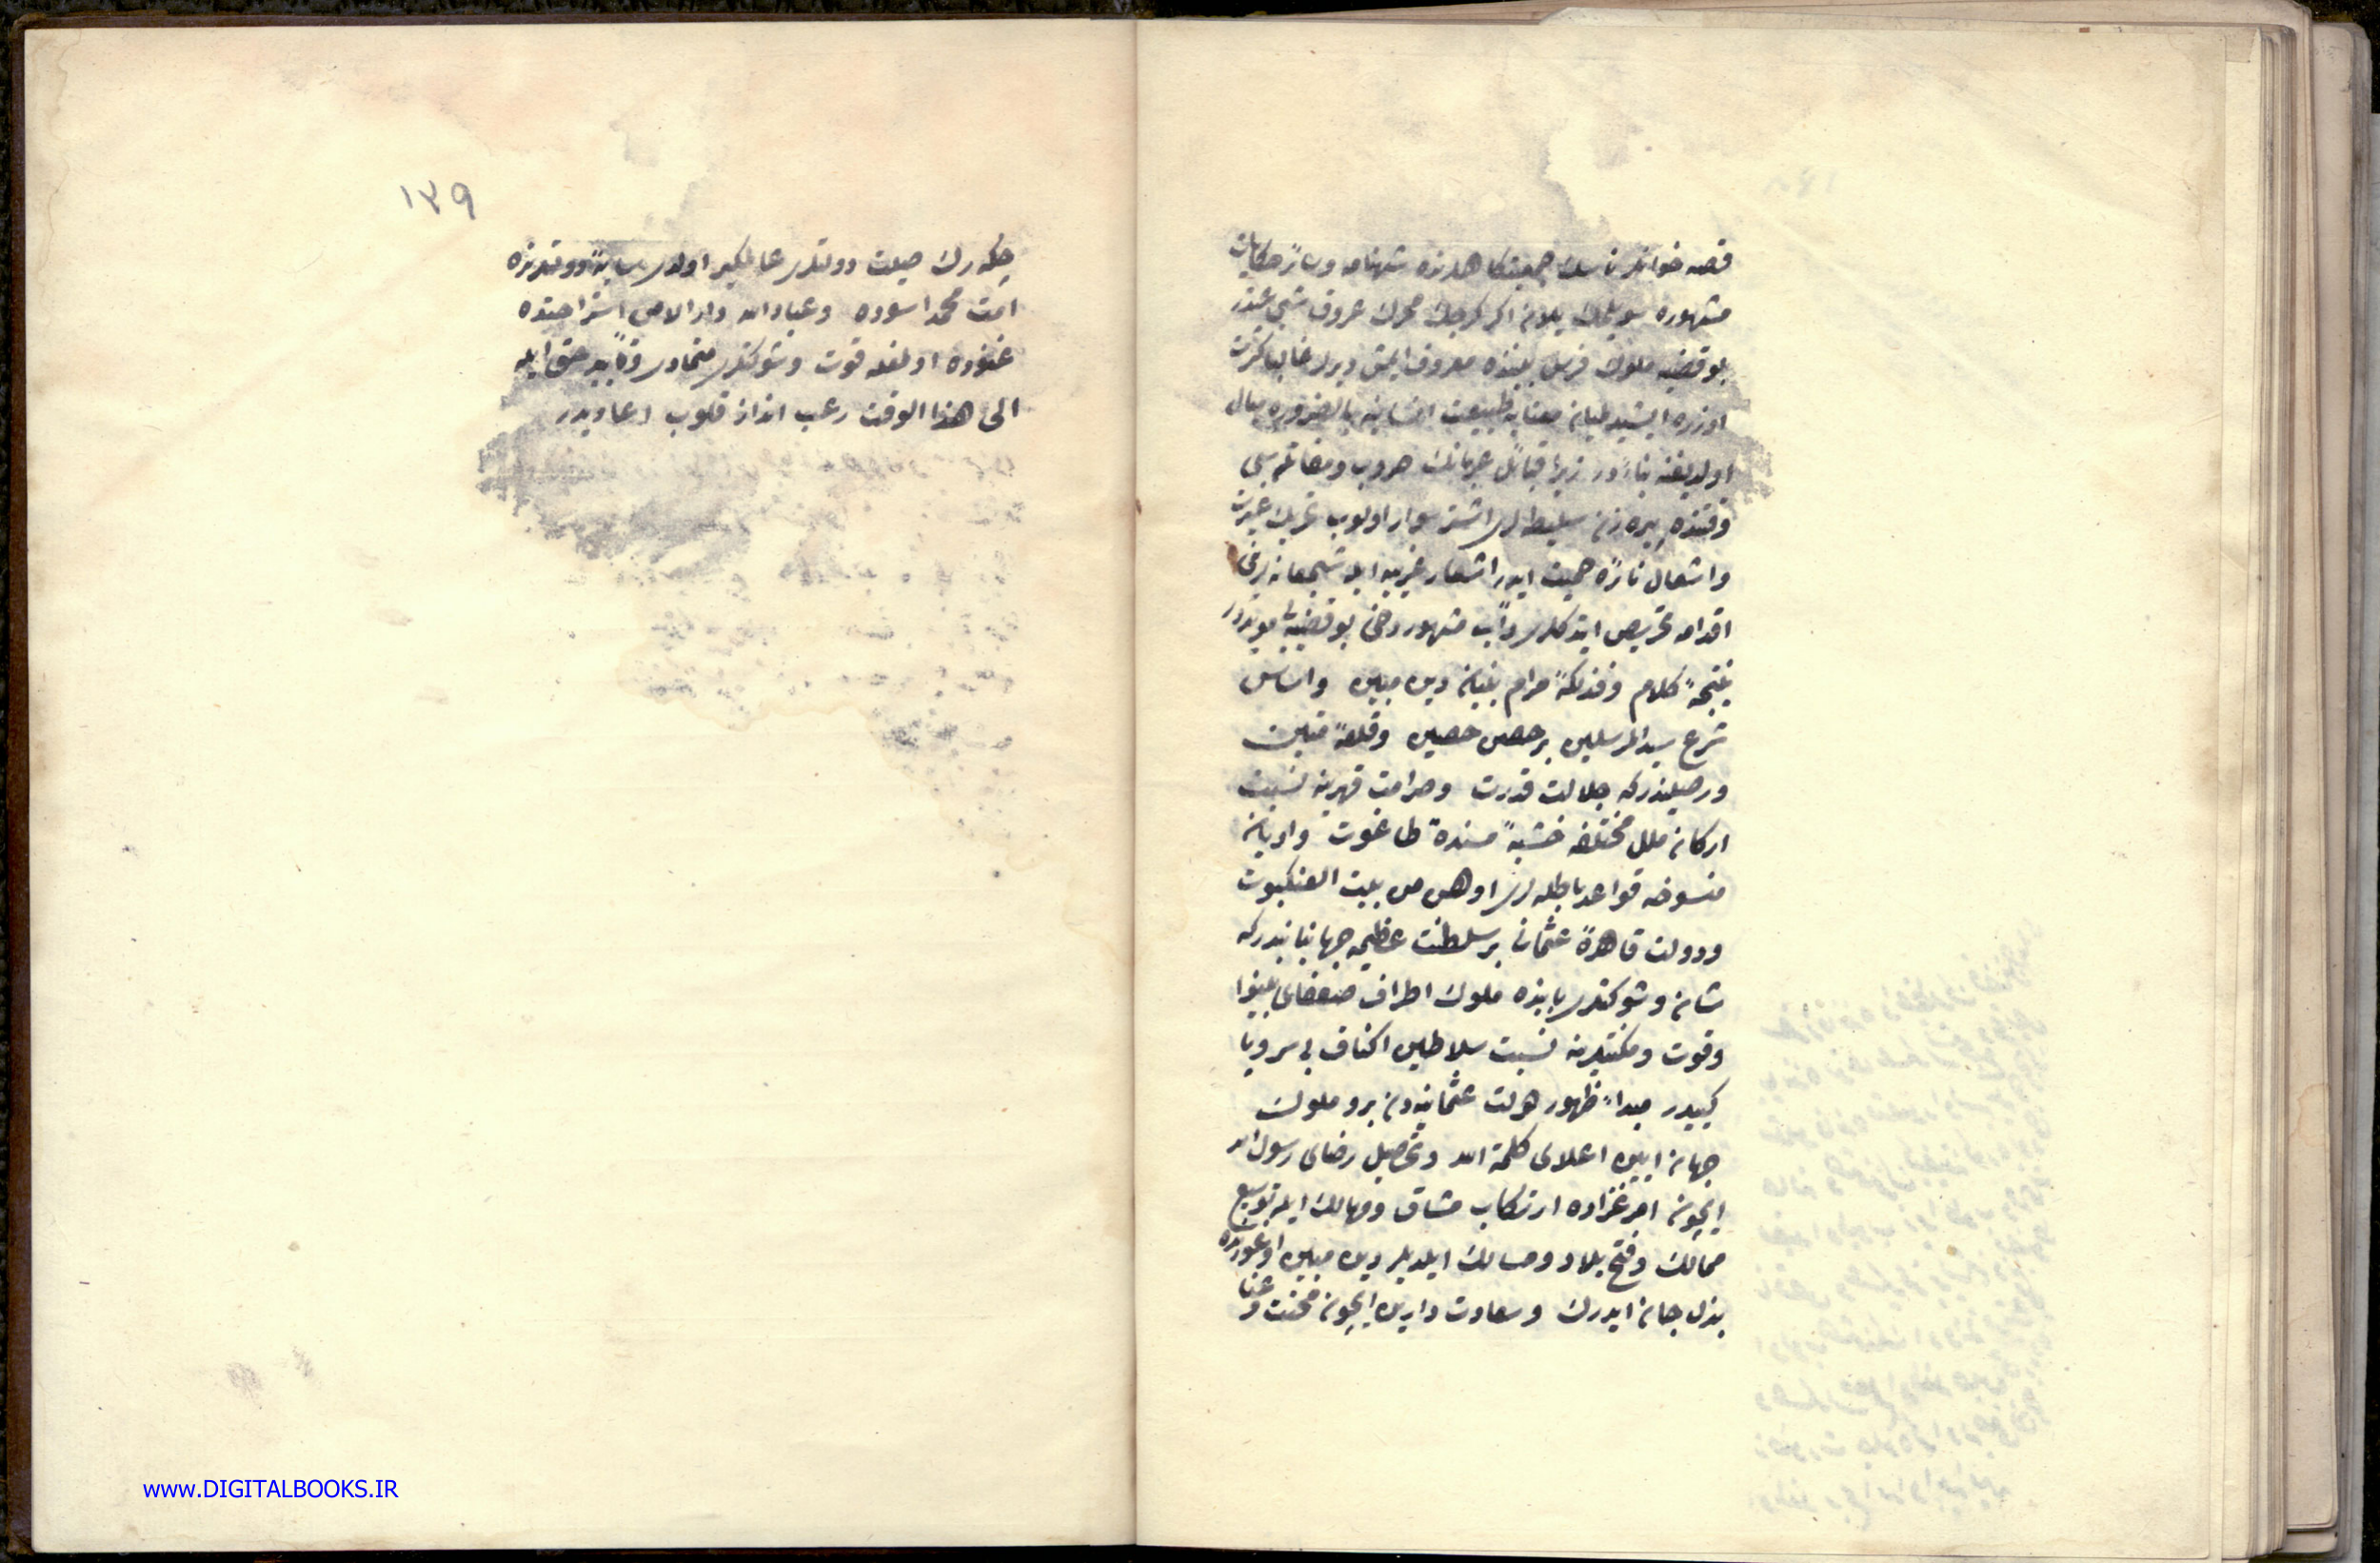 قصه خوانلر ناسك جمعیتكاهلرنده شهنامه وسائر حكایات
مشهوره سویلمك یلان اكر كرچك محرك عروق شجاعتدر
بو قضیه ملوك فرس بیننده معروف ایمش دیرلر غالبا كثرت
اوزره ایشیدیلن معنایه طبیعت انسانیه بالضروره میال
اولدیغنه بناءدر زیرا قبائل عربانك حروب ومقاتله سی
وقتنده پیره زن سلیطه لری اشتر سوار اولوب تحریك غیرت
واشعال نائرۀ حمیت ایدر اشعار غریبه ایله شجعانلرینی
اقدامه تحریص ایتدكلری دأب مشهور دخی بو قضیه یی مویددر
نتیجۀ كلام وفذلكۀ مرام بنیان دین مبین واساس
شرع سید المرسلین بر حصن حصین وقلعۀ متین
ورصیندركه جلالت قدرت وصرامت قهرینه نسبت
اركان ملل مختلفه خشبۀ مسندۀ طاغوت وادیان
منسوخه قواعد باطله لری اوهن من بیت العنكبوت
ودولت قاهرۀ عثمانی بر سلطنت عظیمه جهانبانیدركه
شان وشوكتلری یاننده ملوك اطراف ضعفای بینوا
وقوت ومكنتلرینه نسبت سلاطین اكناف بی سر وپا
كبیدر مبدأ ظهور دولت عثمانیه دن برو ملوك
جهان ایچره اعلای كلمة الله وتحصیل رضای رسول الله
ایچون امر غزاده ارتكاب مشاق ومهالك ایله توسیع
ممالك وفتح بلاد ومسالك ایلدیلر دین مبین اوغورنده
بذل جان ایدرك وسعادت دارین ایچون محنت وعنا
١٣٩
چكه رك صیت دولتلری عالمگیر اولدی سایۀ دولتلرنده
امت محمد اسوده وعباد الله دار الامن استراحتده
غنوده اولمغله قوت وشوكتلری متمادی وتأیید حق ایله
الی هذا الوقت رعب انداز قلوب اعادیدر
www.DIGITALBOOKS.IR